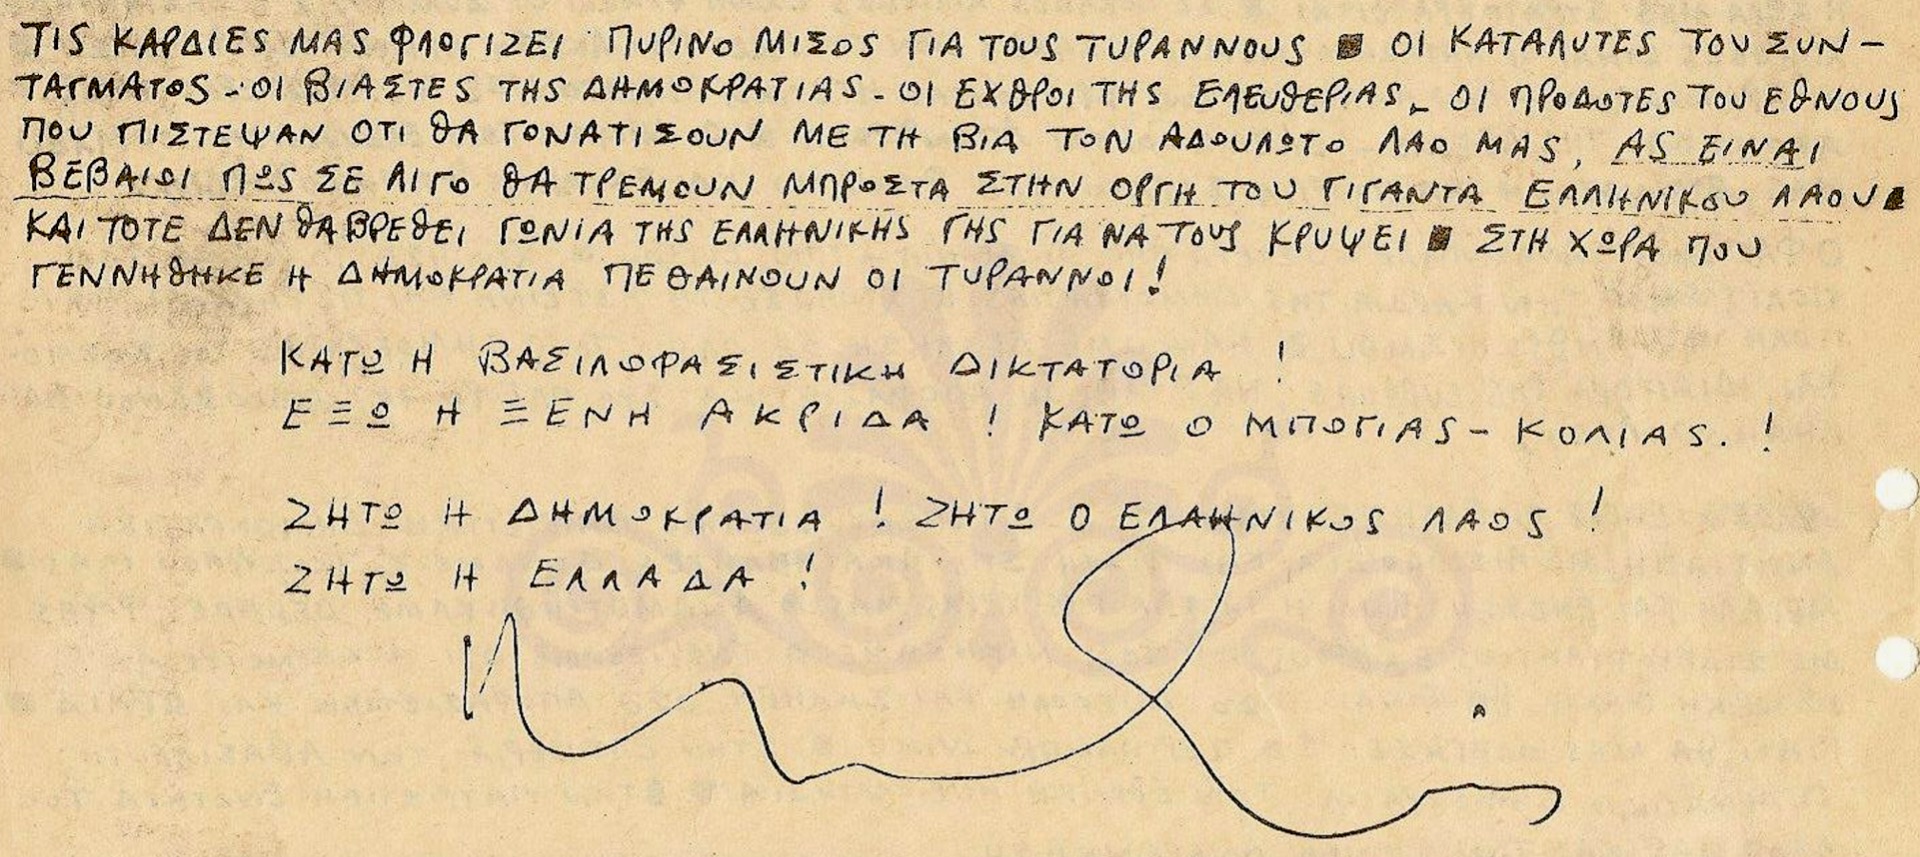 ΤΙΣ ΚΑΡΔΙΕΣ ΜΑΣ ΦΛΟΓΙΖΕΙ ΠΥΡΙΝΟ ΜΙΣΟΣ ΓΙΑ ΤΟΥΣ ΤΥΡΑΝΝΟΥΣ ■ ΟΙ ΚΑΤΑΛΥΤΕΣ ΤΟΥ ΣΥΝ-
ΤΑΓΜΑΤΟΣ - ΟΙ ΒΙΑΣΤΕΣ ΤΗΣ ΔΗΜΟΚΡΑΤΙΑΣ - ΟΙ ΕΧΘΡΟΙ ΤΗΣ ΕΛΕΥΘΕΡΙΑΣ - ΟΙ ΠΡΟΔΟΤΕΣ ΤΟΥ ΕΘΝΟΥΣ
ΠΟΥ ΠΙΣΤΕΨΑΝ ΟΤΙ ΘΑ ΓΟΝΑΤΙΣΟΥΝ ΜΕ ΤΗ ΒΙΑ ΤΟΝ ΑΔΟΥΛΩΤΟ ΛΑΟ ΜΑΣ, ΑΣ ΕΙΝΑΙ
ΒΕΒΑΙΟΙ ΠΩΣ ΣΕ ΛΙΓΟ ΘΑ ΤΡΕΜΟΥΝ ΜΠΡΟΣΤΑ ΣΤΗΝ ΟΡΓΗ ΤΟΥ ΓΙΓΑΝΤΑ ΕΛΛΗΝΙΚΟΥ ΛΑΟΥ ■
ΚΑΙ ΤΟΤΕ ΔΕΝ ΘΑ ΒΡΕΘΕΙ ΓΩΝΙΑ ΤΗΣ ΕΛΛΗΝΙΚΗΣ ΓΗΣ ΓΙΑ ΝΑ ΤΟΥΣ ΚΡΥΨΕΙ ■ ΣΤΗ ΧΩΡΑ ΠΟΥ
ΓΕΝΝΗΘΗΚΕ Η ΔΗΜΟΚΡΑΤΙΑ ΠΕΘΑΙΝΟΥΝ ΟΙ ΤΥΡΑΝΝΟΙ!
ΚΑΤΩ Η ΒΑΣΙΛΟΦΑΣΙΣΤΙΚΗ ΔΙΚΤΑΤΟΡΙΑ !
ΕΞΩ Η ΞΕΝΗ ΑΚΡΙΔΑ ! ΚΑΤΩ Ο ΜΠΟΓΙΑΣ - ΚΟΛΙΑΣ. !
ΖΗΤΩ Η ΔΗΜΟΚΡΑΤΙΑ ! ΖΗΤΩ Ο ΕΛΛΗΝΙΚΟΣ ΛΑΟΣ !
ΖΗΤΩ Η ΕΛΛΑΔΑ !